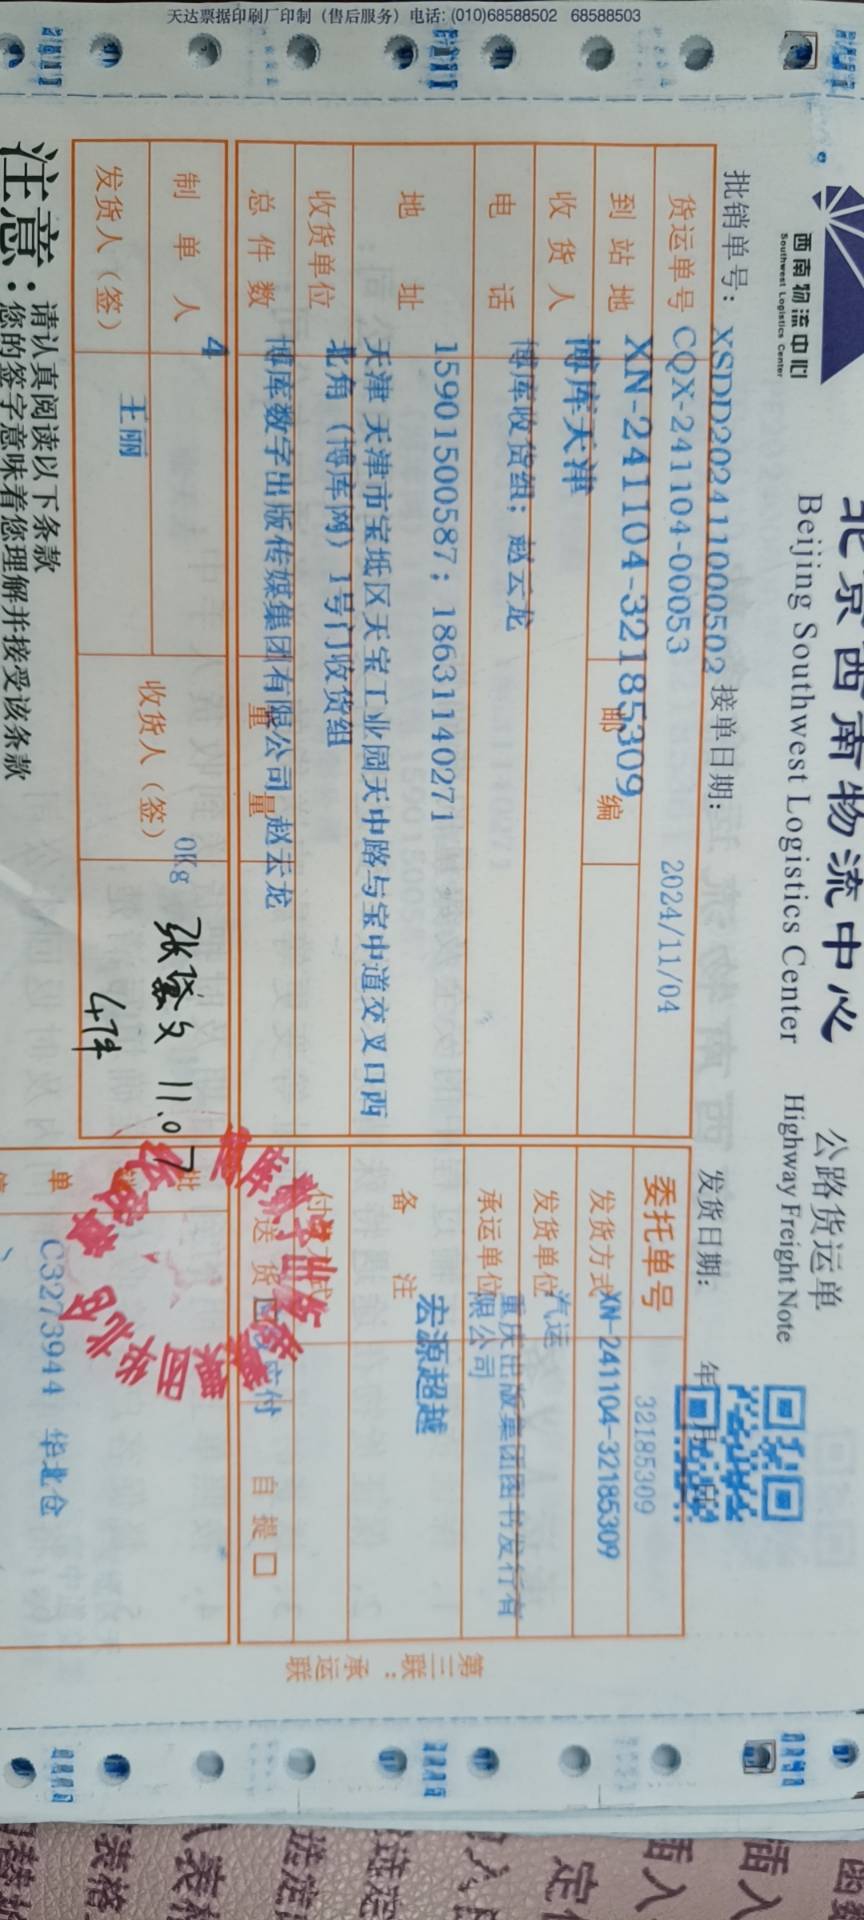 北京西南物流中心 公路货运单
Beijing Southwest Logistics Center Highway Freight Note
西南物流中心
Southwest Logistics Center
批销单号: XSDD202411000502 接单日期: 2024/11/04 发货日期: 年 月 日
货运单号 CQX-241104-00053
委托单号 32185309
到站地 XN-241104-32185309 邮编
发货方式 XN-241104-32185309
收货人 博库天津
发货单位 汽运
电话 博库收货组; 赵云龙
承运单位 重庆出版集团图书发行有
限公司
地址 15901500587; 18631140271
备注 宏源超越
天津 天津市宝坻区天宝工业园天中路与宝中道交叉口西
收货单位 北角（博库网）1号门收货组
付费方式
总件数 博库数字出版传媒集团有限公司 赵云龙
重量
送货 应付 自提口
制单人 4
0Kg
发货人（签） 王丽
收货人（签）
张黛文 11.07
4件
批
单
C3273944 华北仓
第三联: 承运联
注意: 请认真阅读以下条款
您的签字意味着您理解并接受该条款
天达票据印刷厂印制（售后服务）电话: (010)68588502 68588503